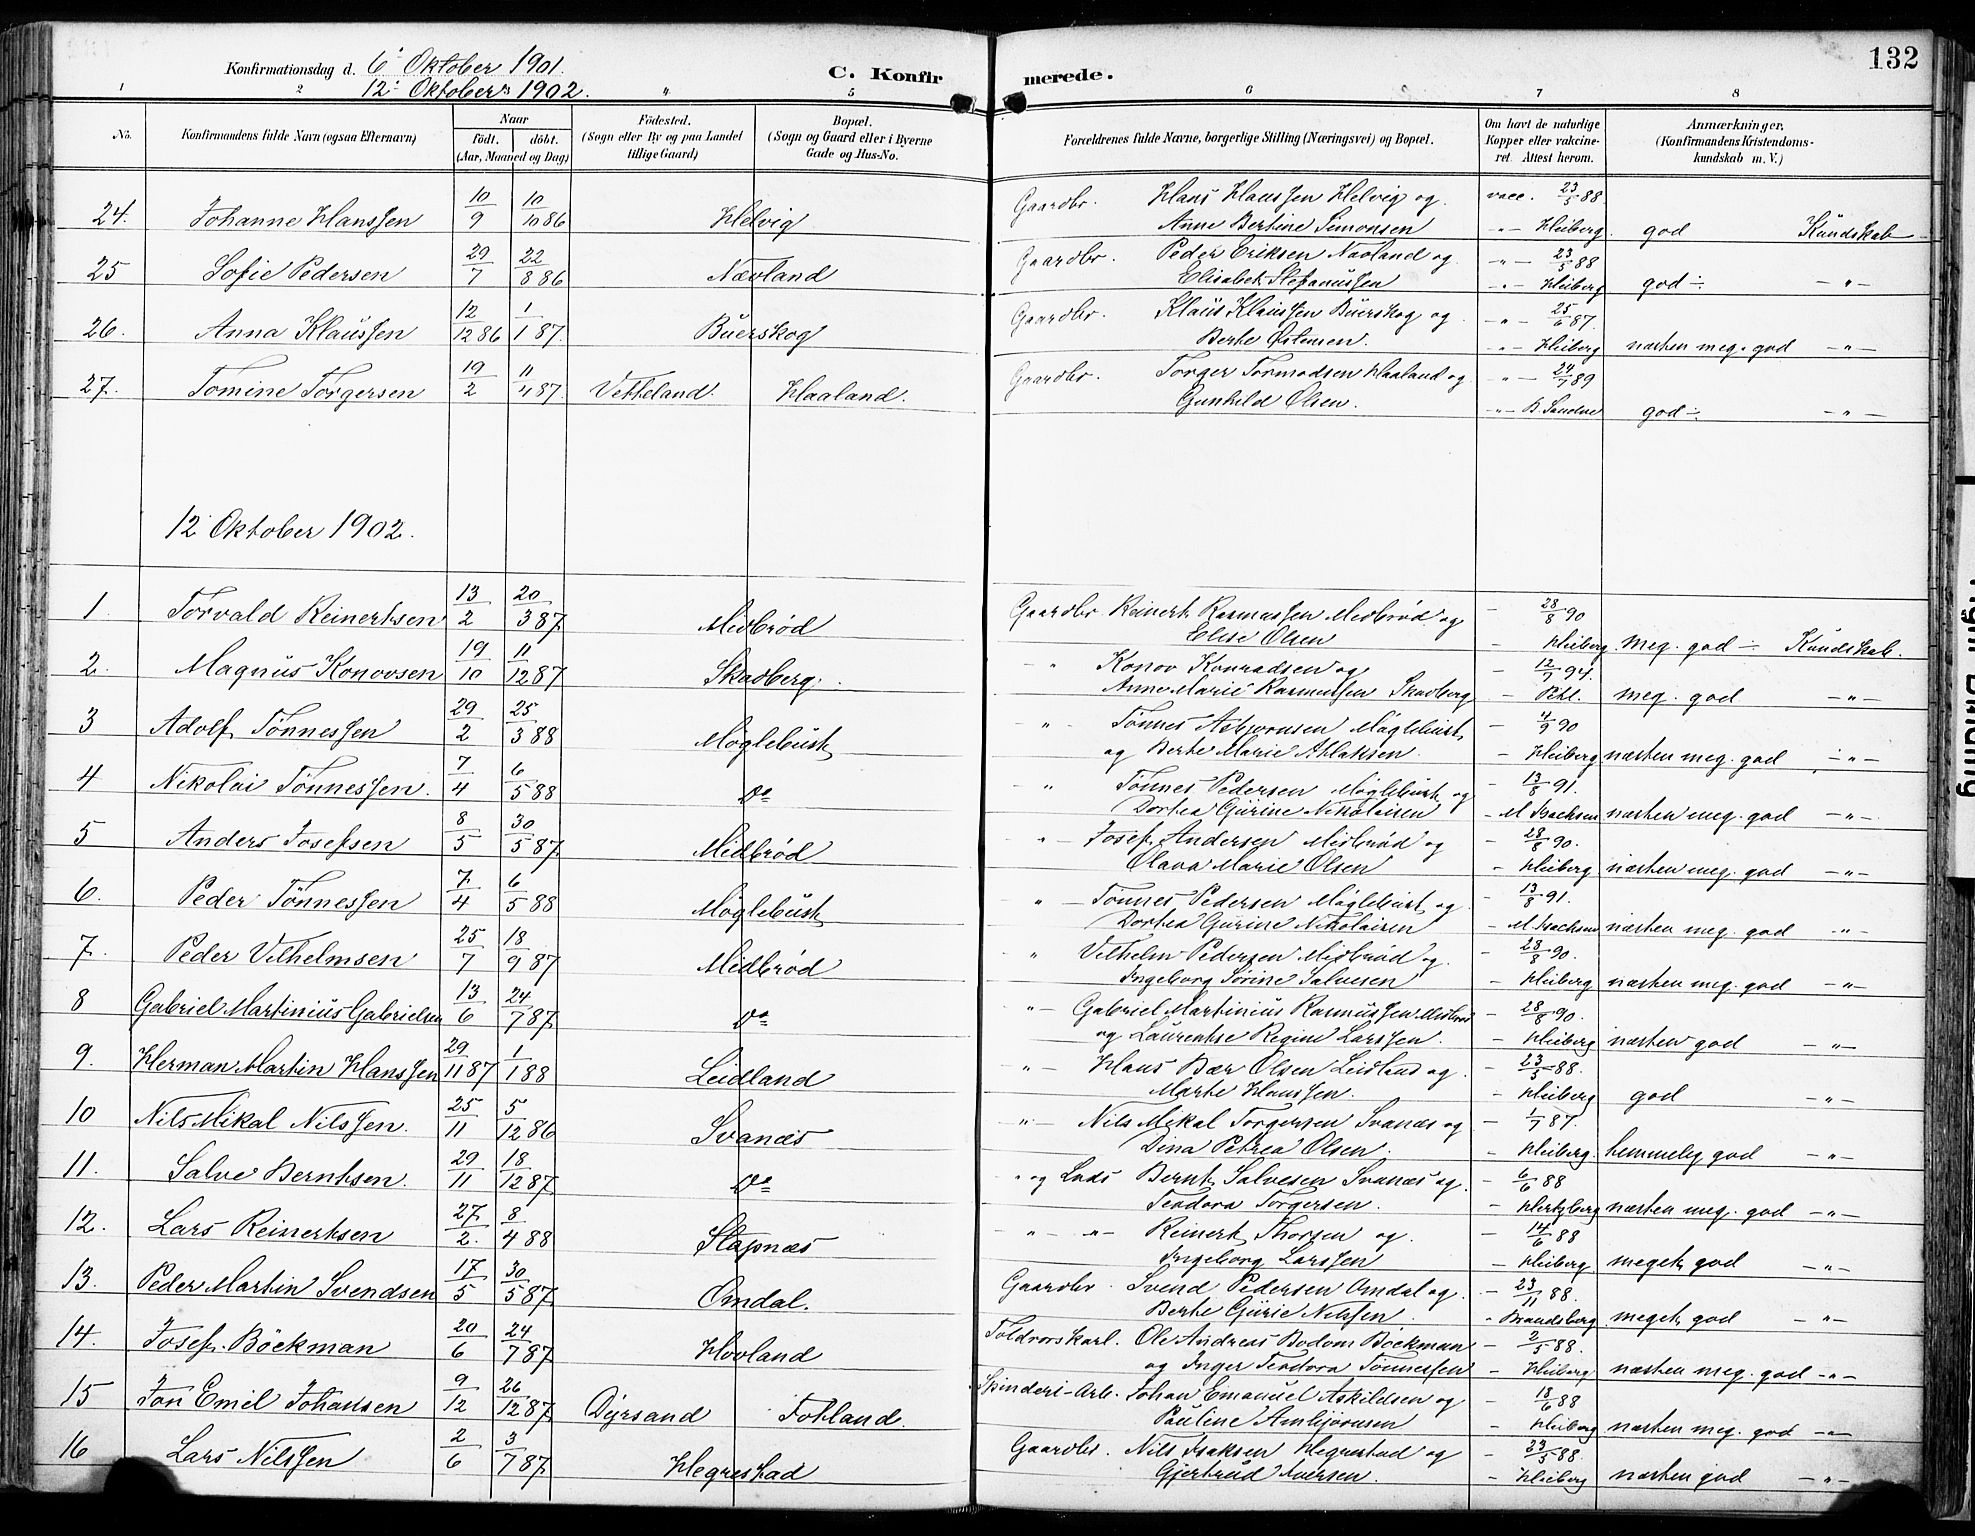 132
Konfirmationsdag d. 6' Oktober 1901.
12' Oktober 1902.
C. Konfirmerede.
1 2 4 5 6 7 8
No. Konfirmandens fulde Navn (ogsaa Efternavn) Naar født. døbt. (Aar, Maaned og Dag) Fødested. (Sogn eller By og paa Landet tillige Gaard) Bopæl. (Sogn og Gaard eller i Byerne Gade og Hus-No. Forældrenes fulde Navne, borgerlige Stilling (Næringsvei) og Bopæl. Om havt de naturlige Kopper eller vaccineret. Attest herom. Anmærkninger. (Konfirmandens Kristendomskundskab m. V.)
24. Johanne Hanssen 10/9 10/10 86 Helvig Gaardbr. Hans Hanssen Helvig og vacc. 23/5 88
Anne Bertine Simonsen -"- Heiberg. god Kundskab
25 Sofie Pedersen 29/7 22/8 86 Nævland Gaardbr. Peder Eriksen Nævland og -"- 23/5 88
Elisabet Stefanussen -"- Heiberg god ÷ -"-
26. Anna Klaussen 12/12 86 1/1 87. Buerskog Gaardbr. Klaus Klaussen Buerskog og -"- 25/6 87.
Berte Ostensen. -"- Heiberg næsten meg. god -"-
27. Tomine Torgersen 19/2 11/4 87. Vetheland. Haaland. Gaardbr. Torger Tormodsen Haaland og -"- 24/7 89
Gunhild Olsen. -"- B. Sandve god ÷. -"-
12 Oktober 1902.
1. Torvald Reinertsen 13/2 20/3 87. Midbrød Gaardbr Reinert Rasmussen Midbrød og - 28/8 90
Elise Olsen - Heiberg. meg. god ÷ Kundskab.
2. Magnus Konovsen 19/10 11/12 87 Skadberg. " Konov Konradsen og - 12/7 94.
Anne Marie Rasmussen Skadberg - Pehl. meg. god -"-
3 Adolf Tønnessen 29/2 25/3 88 Møglebust -"- Tønnes Asbjørnsen Møglebust - 4/9 90
og Berte Marie Atlaksen. - Heiberg næsten meg. god -"-
4 Nikolai Tønnessen. 7/4 6/5 88 Do " Tønnes Pedersen Møglebust og - 13/8 91.
Dortea Gurine Nikolaisen - M Isachsen næsten meg. god -"-
5 Anders Josefsen 8/5 30/5 87. Midbrød "- Josef Andersen Midbrød og - 28/8 90.
Olava Marie Olsen - Heiberg næsten meg. god -"-
6. Peder Tønnessen 7/4 6/5 88 Møglebust "- Tønnes Pedersen Møglebust og - 13/8 91.
Dortea Gurine Nikolaisen - M. Isachsen næsten meg. god -"-
7. Peder Vilhelmsen 25/7 18/9 87 Midbrød " Vilhelm Pedersen Midbrød og. - 28/8 90.
Ingeborg Sørine Salvesen - Heiberg næsten meg. god -"-
8 Gabriel Martinius Gabrielsen 13/6 24/7 87. Do "- Gabriel Martinius Rasmussen Midbrød - 28/8 90.
og Laurentse Regine Larssen. - Heiberg næsten god -"-
9. Herman Martin Hanssen 29/11 87 1/1 88 Leidland "- Hans Bær Olsen Leidland og - 23/5 88.
Marte Hanssen. - Heiberg god -"-
10 Nils Mikal Nilssen. 25/11 5/12 86 Svanæs "- Nils Mikal Torgersen Svanæs og - 1/7 87.
Dina Petrea Olsen. - Heiberg. temmelig god -"-
11. Salve Berntsen. 29/11 18/12 87. Do " og Lods Bernt Salvesen Svanæs og. - 6/6 88
Teodora Torgersen. - Hertzberg næsten meg. god -"-
12. Lars Reinertsen 27/2. 8/4 88 Stapnæs - " - "- Reinert Thorsen og. - 14/6 88
Ingeborg Larssen - Heiberg. meget god -"-
13. Peder Martin Svendsen 17/5 30/5 87. Omdal. Gaardbr. Svend Pedersen Omdal og. - 23/11 88.
Berte Gurie Nilssen. " Brandsberg meget god -"-
14. Josef Bøckman 20/6 24/7 87. Hovland Toldrorskarl. Ole Andreas Bodom Bøckman - 2/5 88.
og Inger Teodora Tønnessen - Heiberg næsten meg. god -"-
15 Jon Emil Johansen 9/12 26/12 87. Dyrsand Fotland. Spinderi-Arb. Johan Emanuel Askildsen og - 18/6 88
Pauline Ambjørnsen - Heiberg næsten meg. god -"-
16 Lars Nilssen 2/6 3/7 87. Hegrestad Gaardbr. Nils Isaksen Hegrestad og - 23/5 88.
Gjertrud Iversen. - Heiberg næsten god -"-